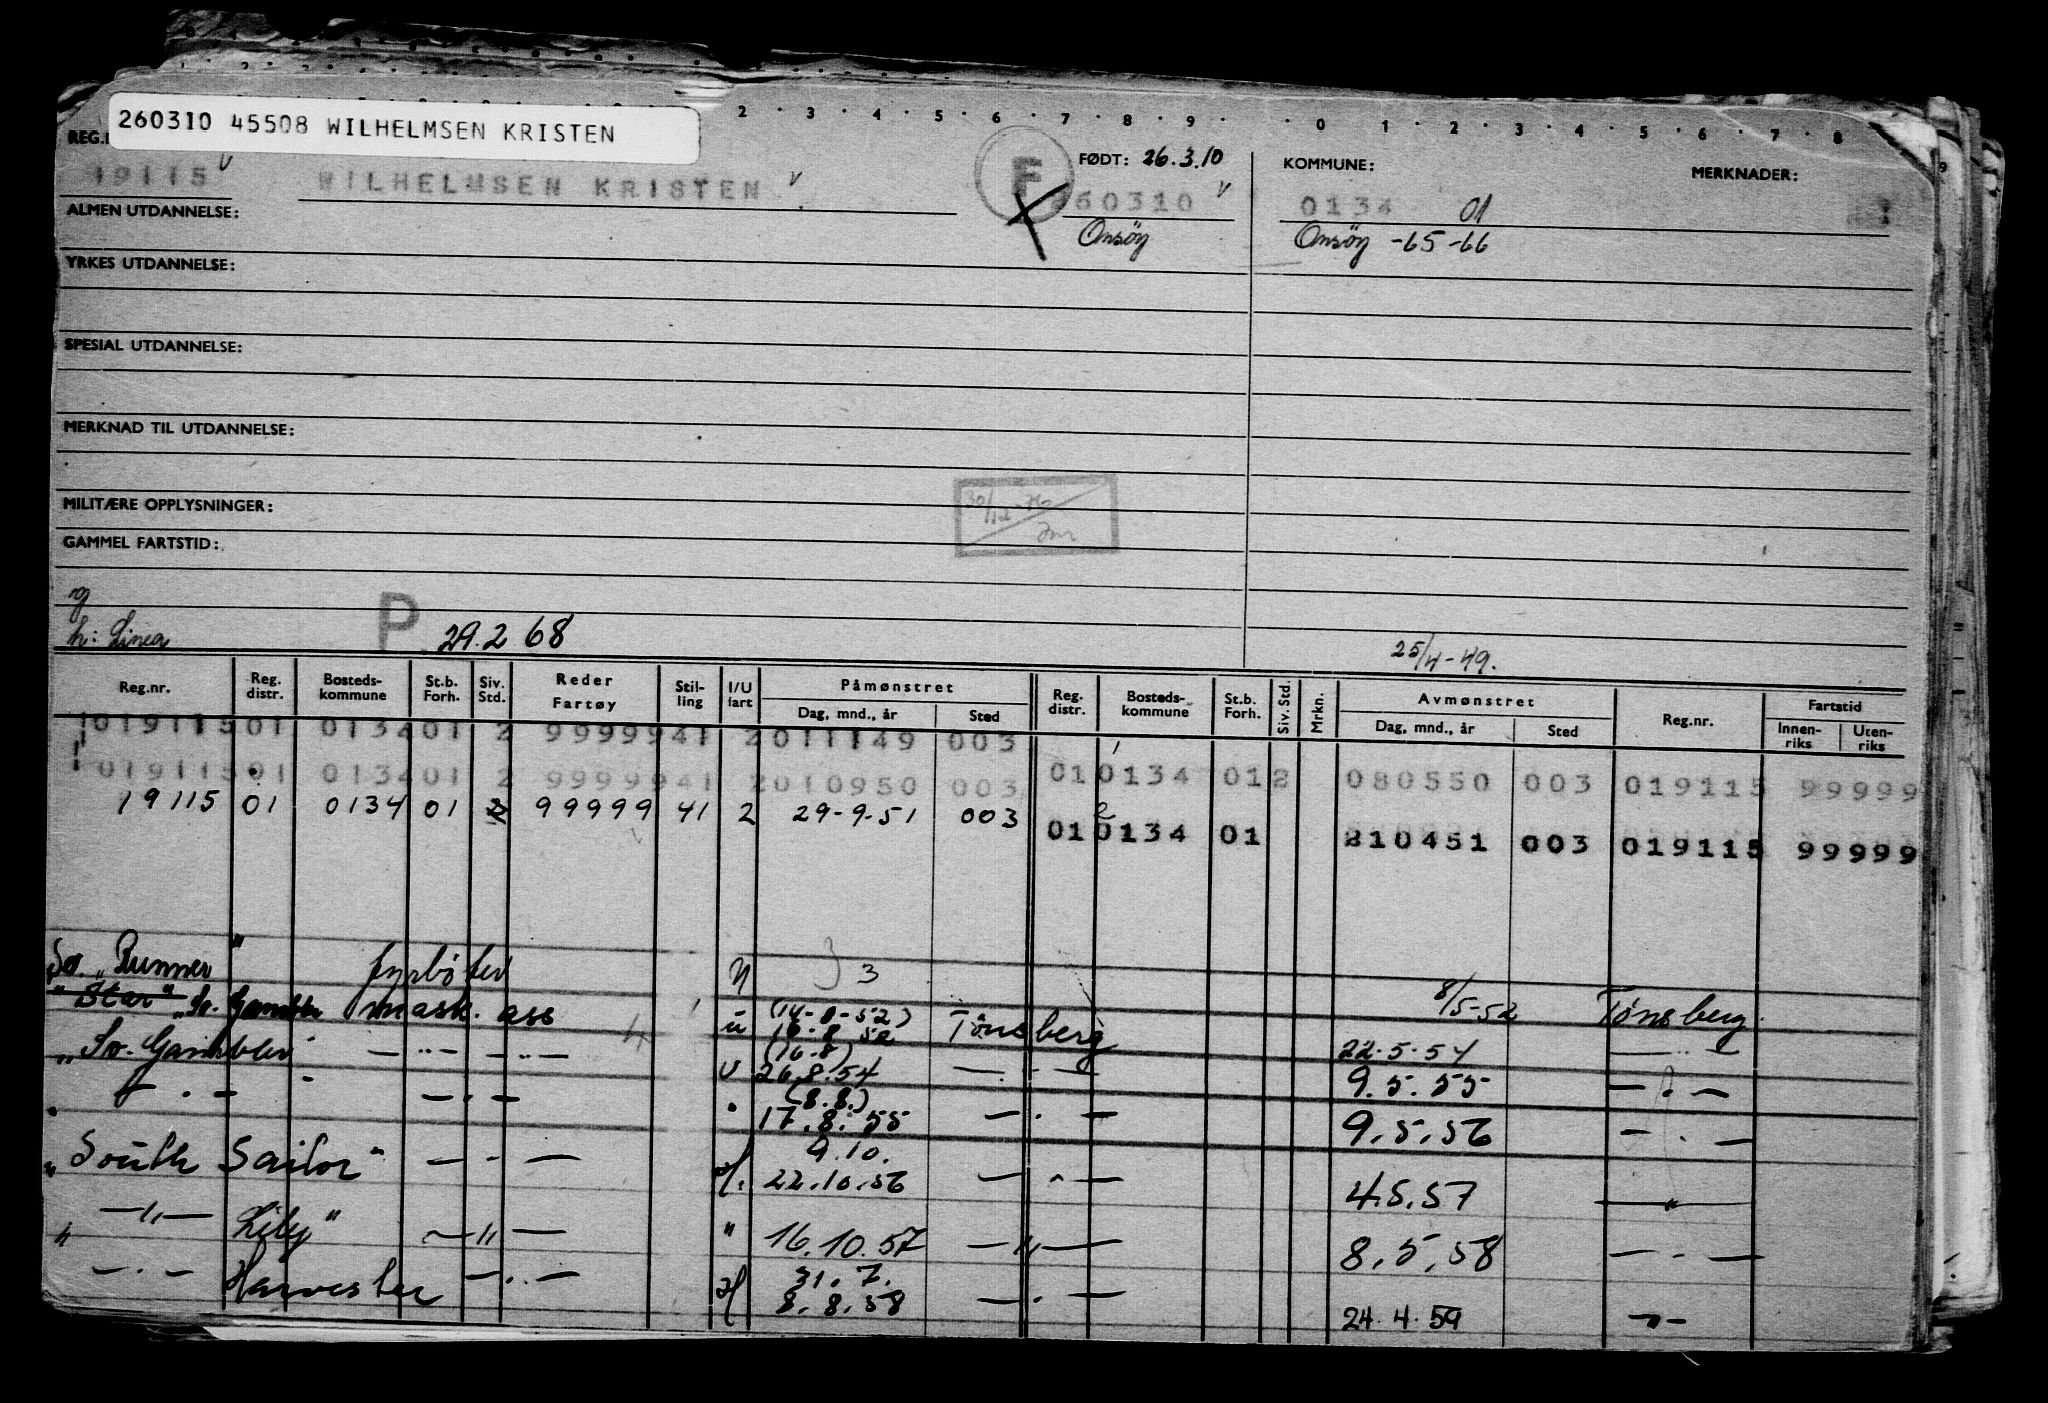 2 · 3 · 4 · 5 · 6 · 7 · 8 · 9 · · 0 · 1 · 2 · 3 · 4 · 5 · 6 · 7 · 8
260310 45508 WILHELMSEN KRISTEN
FØDT: 26.3.10
KOMMUNE:
MERKNADER:
19115 WILHELMSEN KRISTEN F 260310 0134 01
ALMEN UTDANNELSE:
Onsøy Onsøy -65-66
YRKES UTDANNELSE:
SPESIAL UTDANNELSE:
MERKNAD TIL UTDANNELSE:
MILITÆRE OPPLYSNINGER:
GAMMEL FARTSTID:
h: Linea P 29.2 68 25/4-49.
Reg.nr. Reg. distr. Bosteds- kommune St.b. Forh. Siv. Std. Reder Fartøy Stil- ling I/U fart Påmønstret Dag, mnd., år Sted Reg. distr. Bosteds- kommune St.b. Forh. Siv. Std. Mrkn. Avmønstret Dag, mnd., år Sted Reg.nr. Fartstid Innen- riks Uten- riks
019115 01 0134 01 2 99999 41 2 011149 003
019115 01 0134 01 2 99999 41 2 010950 003 01 0134 01 2 080550 003 019115 99999
19115 01 0134 01 2 99999 41 2 29-9-51 003 01 0134 01 210451 003 019115 99999
So. "Runner" fyrbøter 3 8/5-52 Tønsberg
"Star" So. Gambler mask. ass ü 16-8 52 Tönsberg 22.5.54 — " —
(16-8)
"So. Gambler — " — — " — 26.8.54 — " — 9.5.55 — " —
(8.8.)
— " — — " — 17.8.55 — " — 9.5.56 — " —
9.10.
"South Sailor" — " — 22.10.56 — " — 4.5.57 — " —
" — " — Lily" — " — " 16.10.57 — " — 8.5.58 — " —
31.7.
— " — Harvester — " — 8.8.58 — " — 24.4.59 — " —